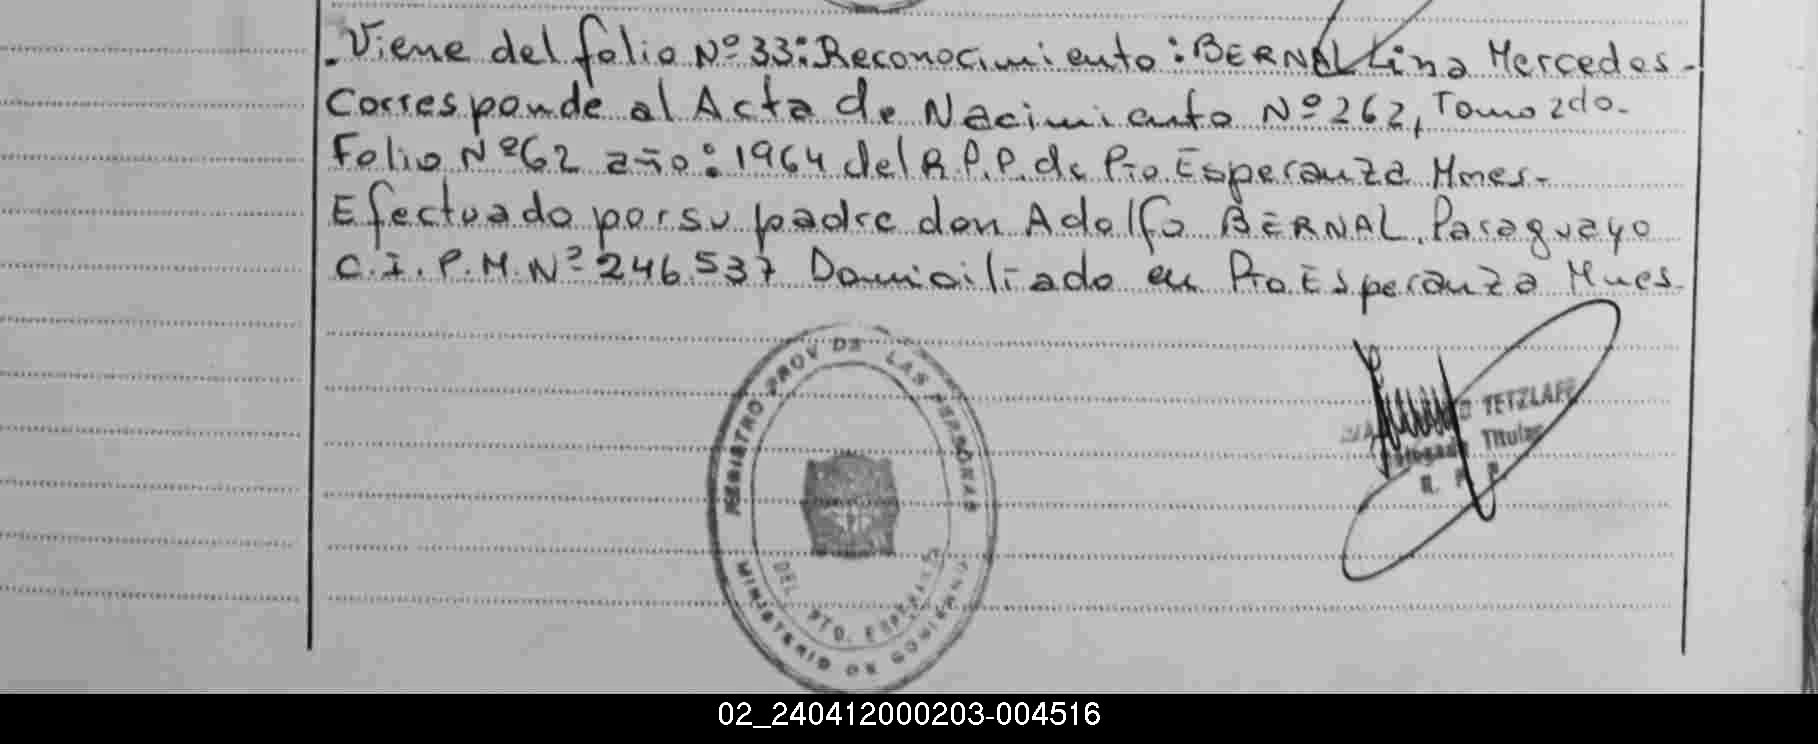 . Viene del folio Nº 33: Reconocimiento: BERNAL Lina Mercedes-
Corresponde al Acta de Nacimiento Nº 262, Tomo 2do-
Folio Nº 62 año: 1964 del R.P.P. de Pto Esperanza Mnes-
Efectuado por su padre don Adolfo BERNAL, Paraguayo
C.I.P.M. Nº 246.537 Domiciliado en Pto Esperanza Mnes-
REGISTRO PROV DE LAS PERSONAS
DEL. PTO. ESPERANZA
MINISTERIO DE GOBIERNO
TETZLAFF
Delegado Titular
R. P. P
02_240412000203-004516